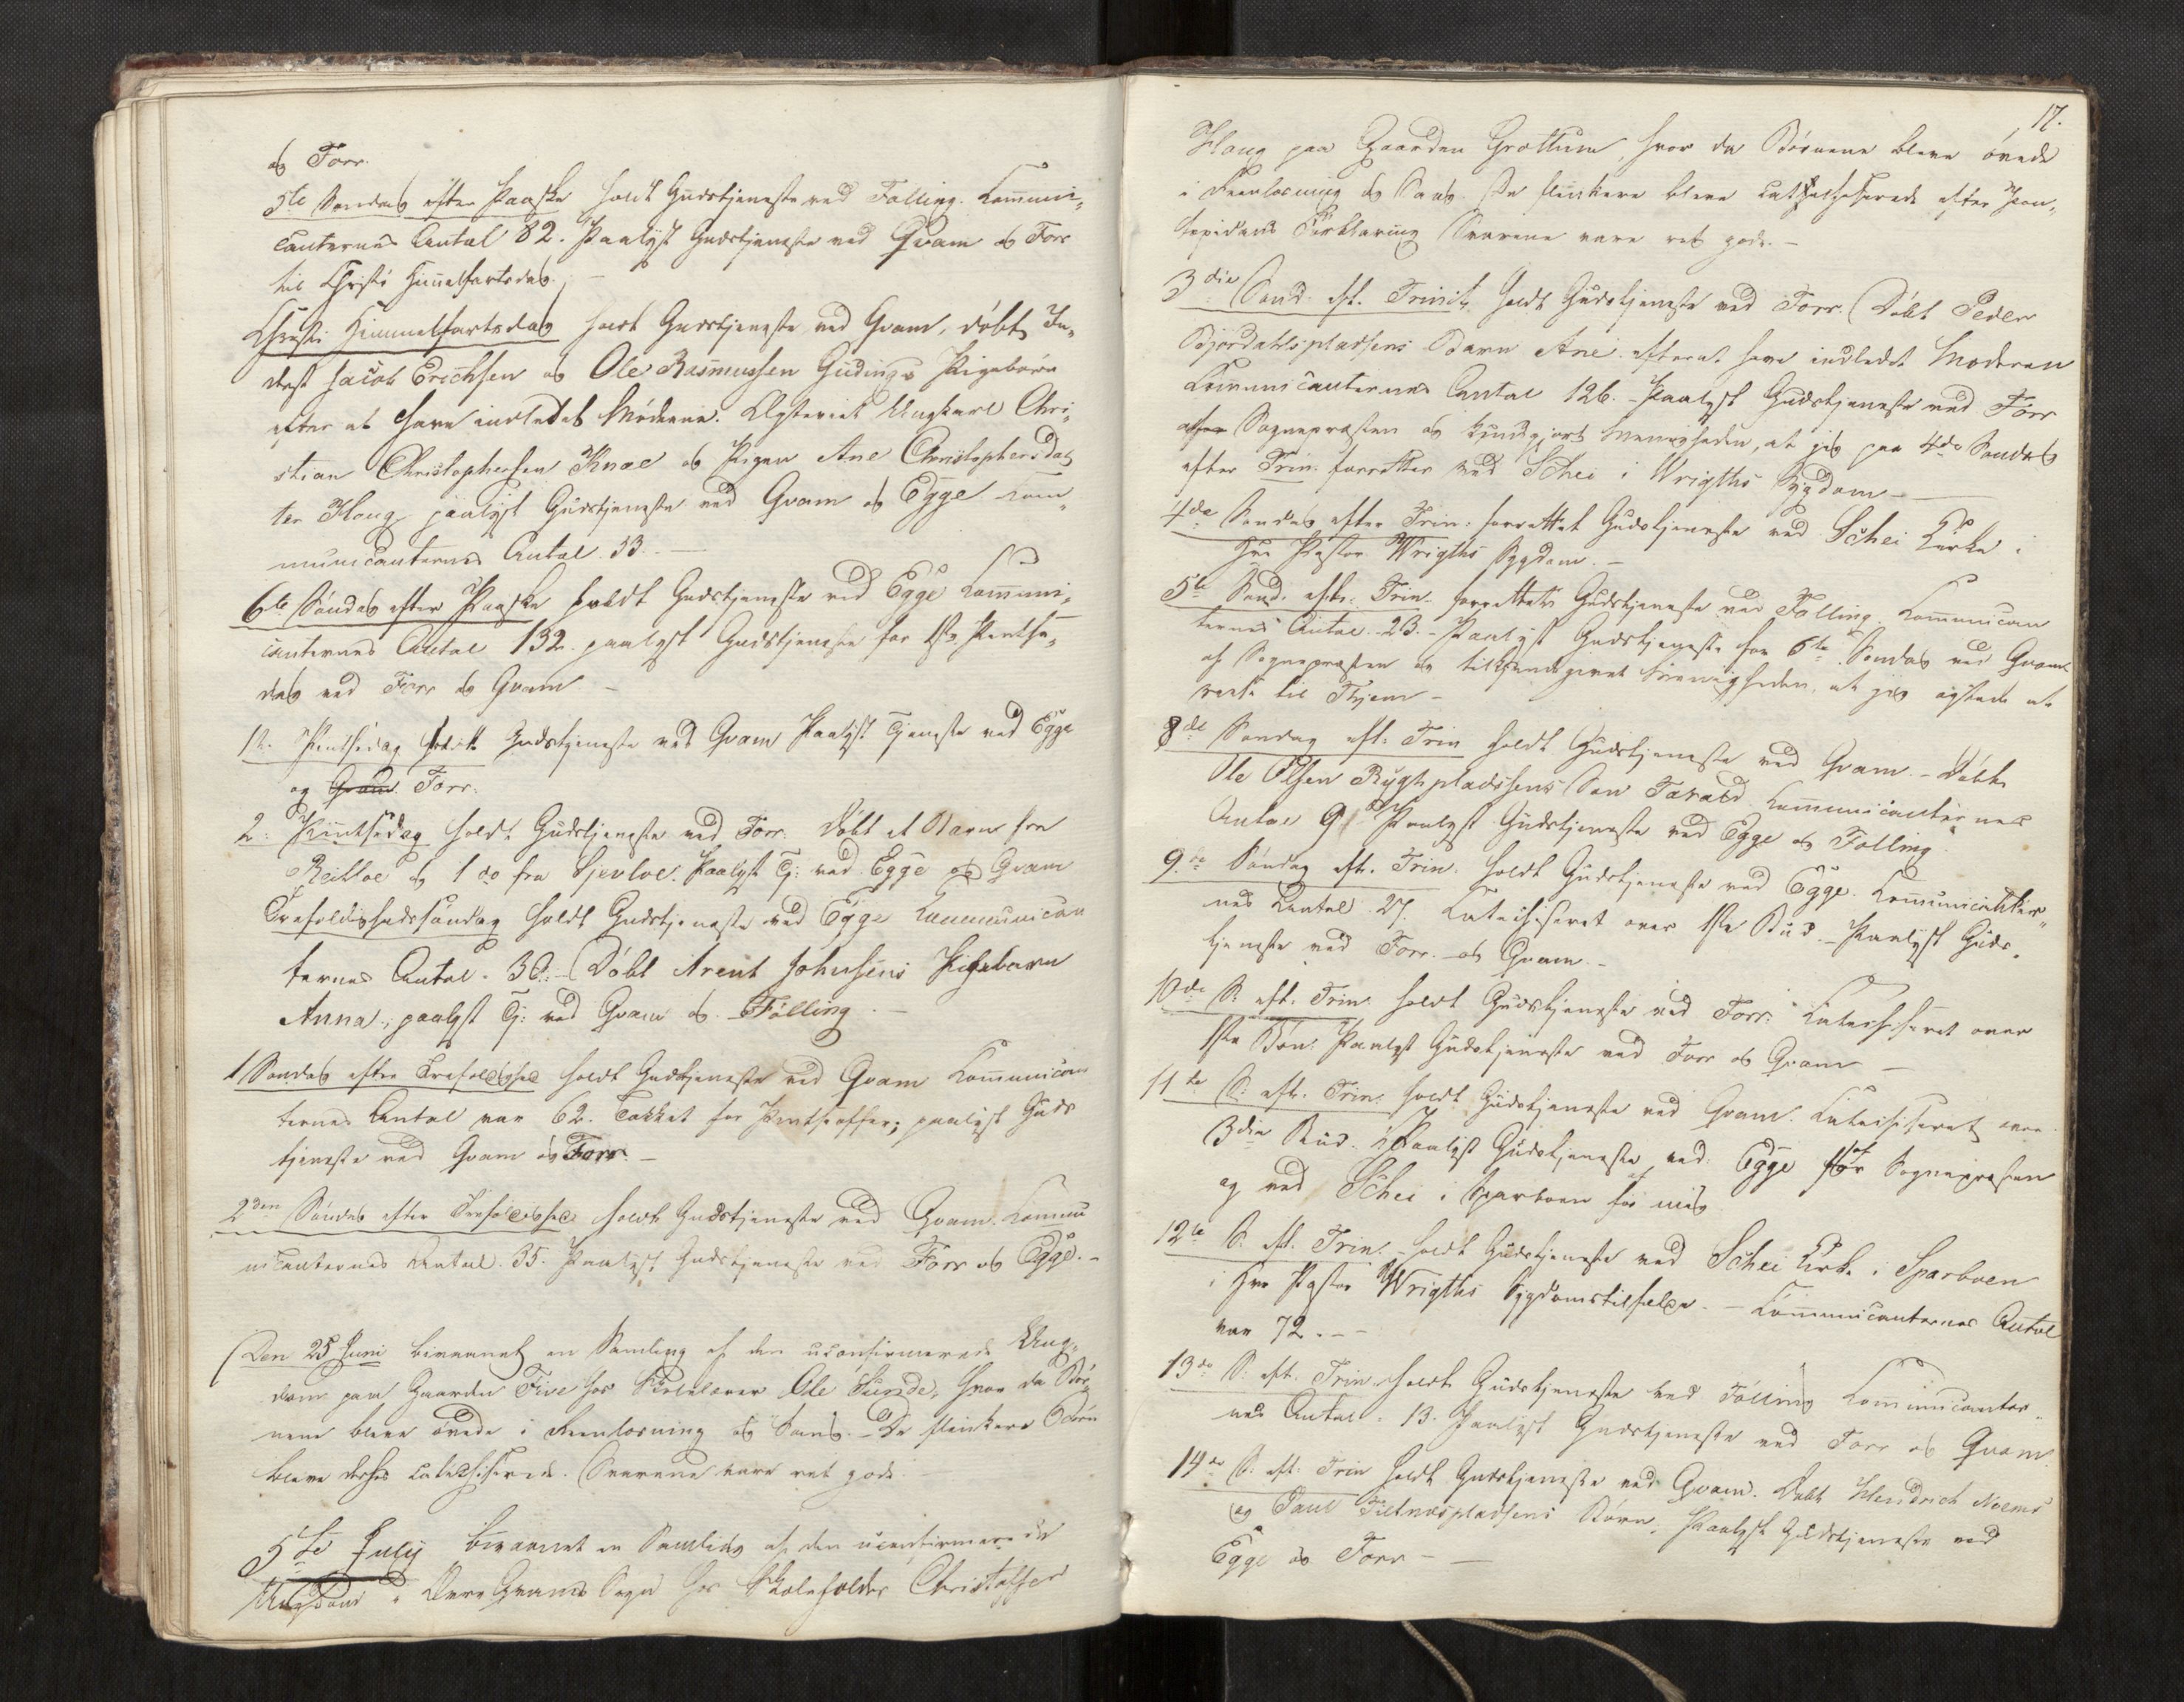 og Forr.
5te Søndag efter Paaske holdt Gudstjeneste ved Følling. Communi„
canternes Antal 82. Paalyst Gudstjeneste ved Qvam og Forr
til Christi Himmelfartsdag. –
Christi Himmelfartsdag holdt Gudstjeneste ved Qvam, døbt In„
derst Jacob Erichsen og Ole Rasmussen Gudings Pigebørn
efter at have indledet Mødrene. Ungkarl Chri„
stian Christophersen Knoe og Pigen Ane Christophersdat„
ter Haug paalyst Gudstjeneste ved Qvam og Egge Com„
municanternes Antal 53. –
6te Søndag efter Paaske holdt Gudstjeneste ved Egge Communi„
canternes Antal 132. paalyst Gudstjeneste for 1ste Pintse„
dag ved Forr og Qvam –
1te Pintsedag holdt Gudstjeneste ved Qvam Paalyst Tjeneste ved Egge
og Qvam Forr.
2. Pintsedag holdt Gudstjeneste ved Forr. Døbt et Barn fra
Reitloe og 1 do fra Sjevloe. Paalyst Tj: ved Egge og Qvam
Trefoldighedssøndag holdt Gudstjeneste ved Egge Communican
ternes Antal. 30. – Døbt Arent Johnsens Pigebarn
Anna, paalyst Tj: ved Qvam og Følling. –
1 Søndag efter Trefoldighed holdt Gudstjeneste ved Qvam Communican
ternes Antal var 62. Takket for Pintseoffer; paalyst Guds
tjeneste ved Qvam og Forr. –
2den Søndag efter Trefoldighed holdt Gudstjeneste ved Qvam. Commu
nicanternes Antal. 35. Paalyst Gudstjeneste ved Forr og Egge. –
Den 25 Juni bivaanet en Samling af den uconfirmerede Ung„
dom paa Gaarden Five hos Skolelærer Ole Sunde, hvor da Bør„
nene bleve øvede i Reenlæsning og Sang. – De flinkere Børn
bleve catechiserede. Svarene vare ret gode. –
5te July bivaanet en Samling af den uconfirmerede
Ungdom i Qvams Sogn hos Skoleholder Christopher
17.
Haug paa Gaarden Grøttum, hvor da Børnene bleve øvede
i Reenlæsning og Sang. De flinkere bleve catechiserede efter Pon„
topidans Forklaring Svarene vare ret gode. –
3die Sønd. eft. Trinit. holdt Gudstjeneste ved Forr. Døbt Peder
Bjørdahlspladsens Barn Ane efterat have indledet Moderen
Communicanternes Antal 126. – Paalyst Gudstjeneste ved Forr
Sognepræsten og kundgjort Menigheden, at jeg paa 4de Søndag
efter Trin. forretter ved Schei i Wrigths Sygdom –
4de Søndag efter Trin. forrettet Gudstjeneste ved Schei Kirke i
Hr Pastor Wrigths Sygdom. –
5te Sønd. efter Trin. forrettet Gudstjeneste ved Følling. Communican
ternes Antal 23. – Paalyst Gudstjeneste for 6te Søndag ved Qvam
af Sognepræsten og tilkjendegivet Menigheden, at jeg agtede at
reise til Thjem –
8de Søndag eft. Trin holdt Gudstjeneste ved Qvam. – Døbt
Ole Olsen Rygh pladsens Søn Tarald. Communicanternes
Antal 9. Paalyst Gudstjeneste ved Egge og Følling.
9de Søndag eft. Trin. holdt Gudstjeneste ved Egge. Communicanter„
nes Antal 27. Catechiseret over 1ste Bud. – Paalyst Guds„
tjeneste ved Forr. og Qvam. –
10de S. eft. Trin. holdt Gudstjeneste ved Forr. Catechiseret over
1ste Bøn. Paalyst Gudstjeneste ved Forr og Qvam –
11te S. eft. Trin. holdt Gudstjeneste ved Qvam. Catechiseret over
3die Bud. Paalyst Gudstjeneste ved Egge af Sognepræsten
og ved Schei i Sparboen for mig
12te S. eft. Trin. – holdt Gudstjeneste ved Schei Kirke i Sparboen
i Hr Pastor Wrigths Sygdomstilfælde. – Communicanternes Antal
var 72. – –
13de S. eft. Trin. holdt Gudstjeneste ved Følling Communicanter„
nes Antal. 13. Paalyst Gudstjeneste ved Forr og Qvam.
14de S. eft. Trin holdt Gudstjeneste ved Qvam. Døbt Hendrich Moems
og Paul Fietnæspladsens Børn; Paalyst Gudstjeneste ved
Egge og Forr – –